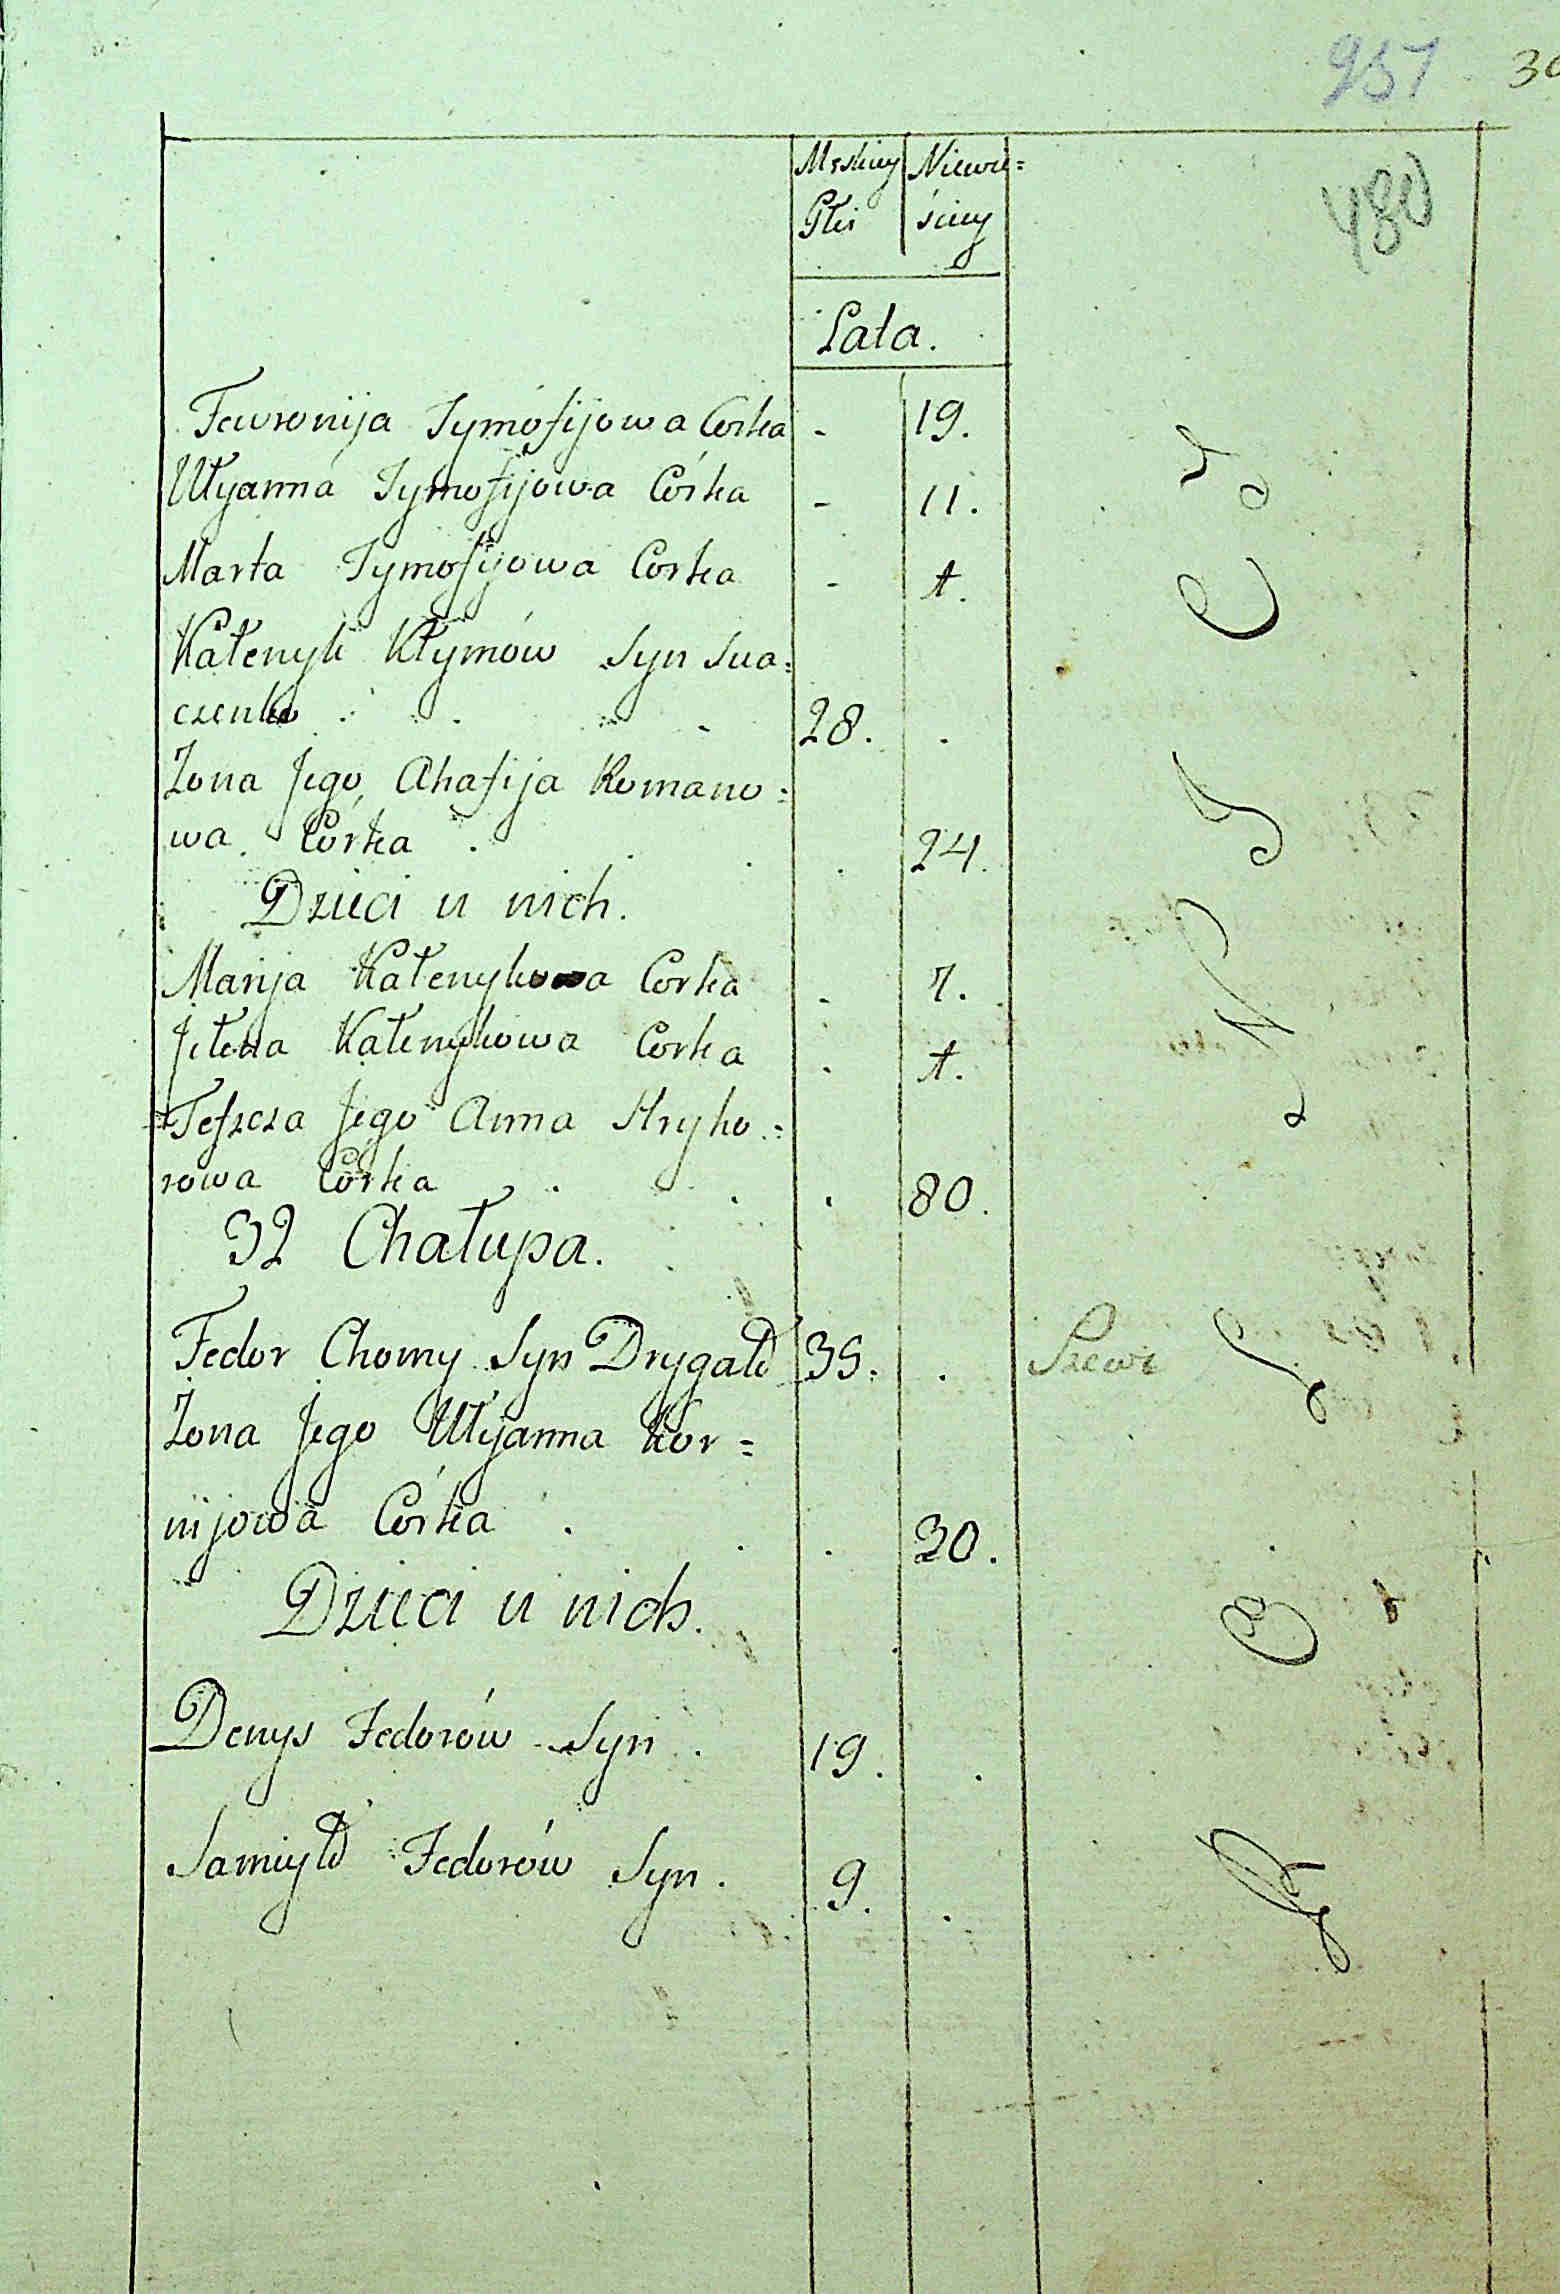 957 30
480
Męskiey Niewie=
Płci ściey
Lata.
Fewronija Tymofijowa Corka - 19.
Ułyanna Tymofijowa Córka - 11.
Marta Tymofijowa Corka - t.
Kałenyk Kłymów Syn Sua=
czenko . . . . 28. .
Zona Jego Ahafija Romano=
wa Córka . . . . 24.
Dzieci u nich.
Marija Kałenykowa Corka . 7.
Jełena Kałenykowa Corka . t.
Teszcza Jego Anna Hryho=
rowa Córka . . . 80.
32 Chałupa.
Fedor Chomy Syn Drygało 35. . Szewc
Zona Jego Ułyanna Kor=
nijowa Córka . . . 30.
Dzieci u nich.
Denys Fedorów Syn . 19. .
Samiyło Fedorów Syn. 9. .